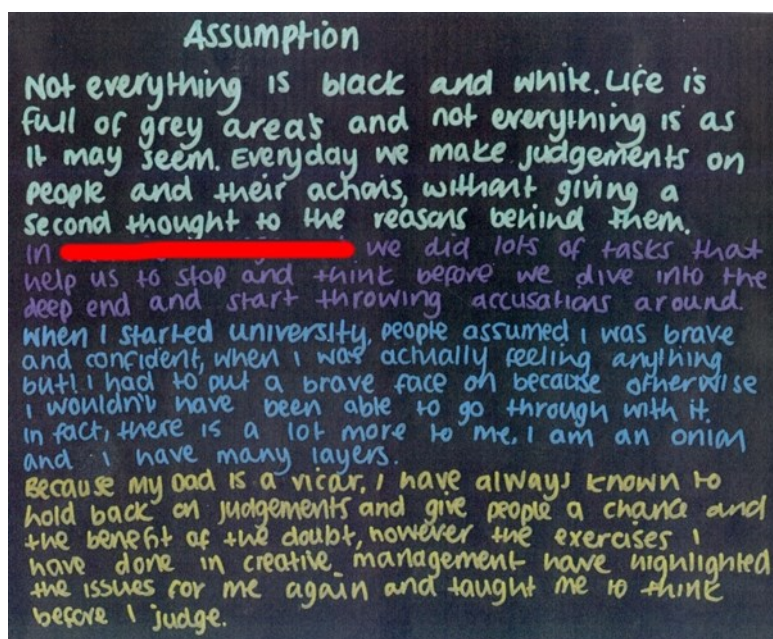 Assumption
Not everything is black and white. Life is
full of grey area's and not everything is as
it may seem. Everyday we make judgements on
people and their actions, without giving a
second thought to the reasons behind them.
In we did lots of tasks that
help us to stop and think before we dive into the
deep end and start throwing accusations around.
When I started university, people assumed I was brave
and confident, when I was actually feeling anything
but! I had to put a brave face on because otherwise
I wouldn't have been able to go through with it.
In fact, there is a lot more to me. I am an onion
and I have many layers.
Because my Dad is a vicar, I have always known to
hold back on judgements and give people a chance and
the benefit of the doubt, however the exercises I
have done in creative management have highlighted
the issues for me again and taught me to think
before I judge.